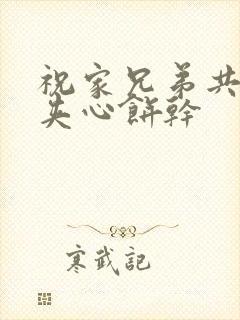 祝家兄弟共
夹心餅幹
寒武記